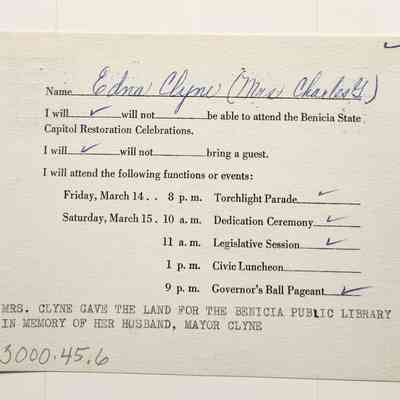 Name Edna Clyne (Mrs Charles G)
I will ✓ will not be able to attend the Benicia State
Capitol Restoration Celebrations.
I will ✓ will not bring a guest.
I will attend the following functions or events:
Friday, March 14 . . 8 p. m. Torchlight Parade ✓
Saturday, March 15 . 10 a. m. Dedication Ceremony ✓
11 a. m. Legislative Session ✓
1 p. m. Civic Luncheon
9 p. m. Governor's Ball Pageant ✓
MRS. CLYNE GAVE THE LAND FOR THE BENICIA PUBLIC LIBRARY
IN MEMORY OF HER HUSBAND, MAYOR CLYNE
3000.45.6